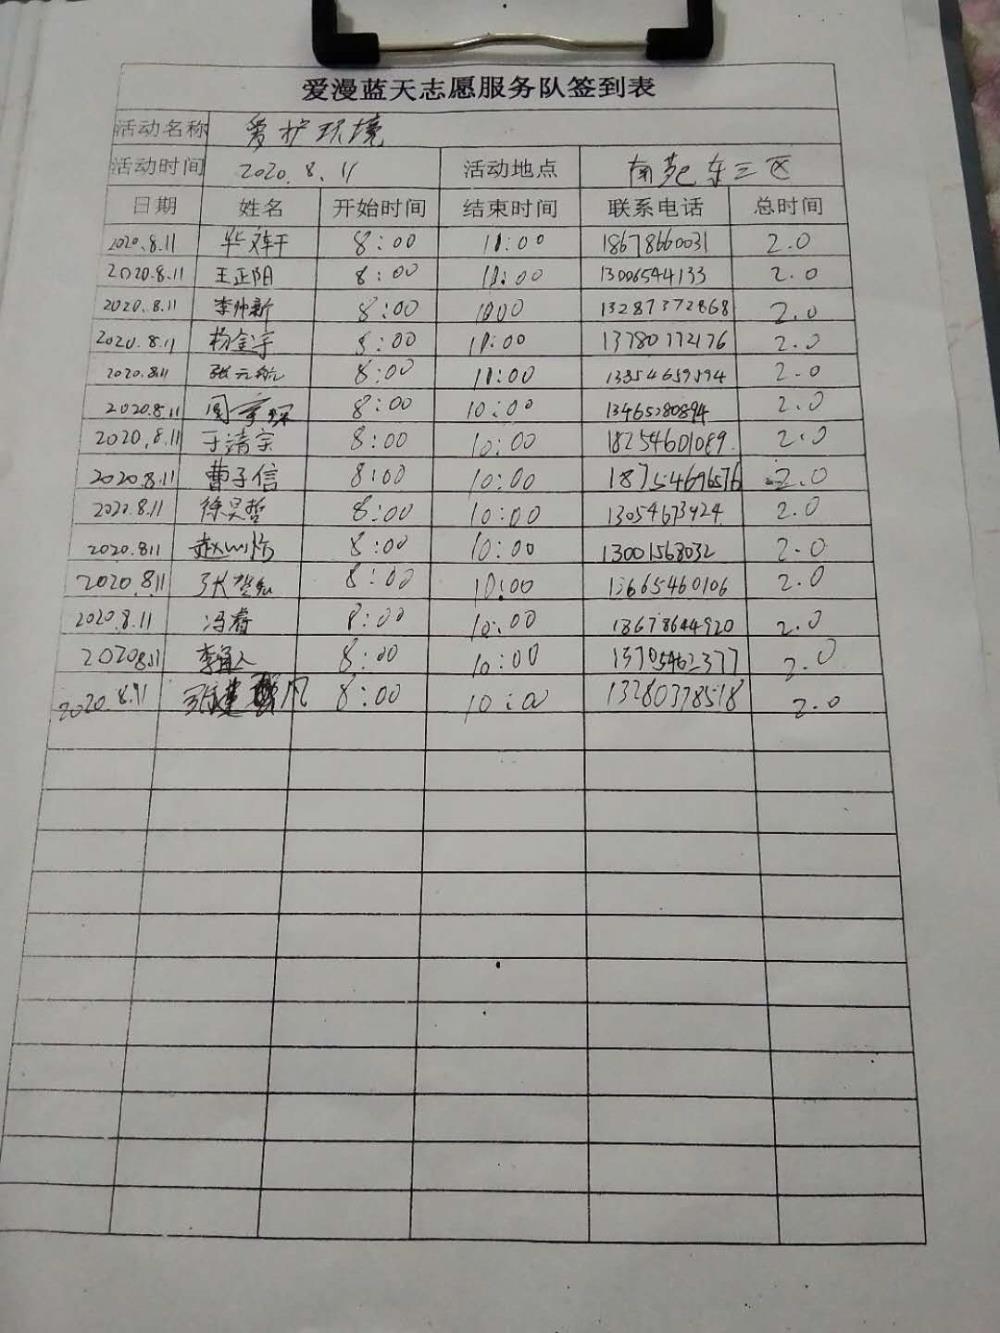 爱漫蓝天志愿服务队签到表
活动名称 爱护环境
活动时间 2020.8.11 活动地点 南苑东三区
日期 姓名 开始时间 结束时间 联系电话 总时间
2020.8.11 8:00 11:00 18678660031 2.0
2020.8.11 王正阳 8:00 11:00 13006544133 2.0
2020.8.11 李帅新 8:00 1000 13287372868 2.0
2020.8.11 杨金宇 8:00 11:00 13780772176 2.0
2020.811 张元航 8:00 11:00 2.0
2020.8.11 8:00 10:00 13465280894 2.0
2020.8.11 于靖宗 8:00 10:00 18254601089 2.0
2020.8.11 曹子信 8:00 10:00 18754696576 2.0
2020.8.11 徐昊哲 8:00 10:00 13054673424 2.0
2020.811 8:00 10:00 13001568032 2.0
2020.811 8:00 10:00 13665460106 2.0
2020.8.11 冯睿 8:00 10:00 2.0
20208.11 8:00 10:00 15705462377 2.0
2020.8.11 8:00 13280378518 2.0